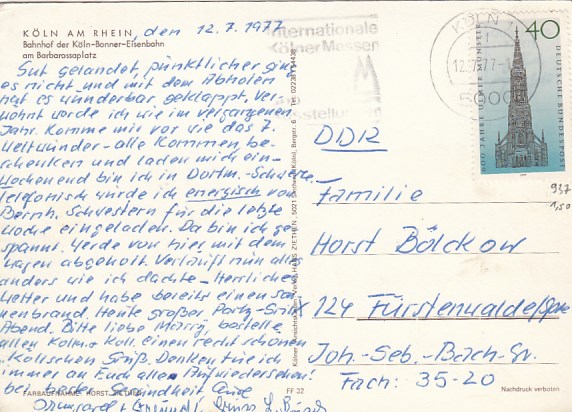 KÖLN AM RHEIN, den 12.7.1977
Bahnhof der Köln-Bonner-Eisenbahn
am Barbarossaplatz
Gut gelandet, pünktlicher ging
es nicht und mit dem Abholen
hat es wunderbar geklappt, Ver-
wöhnt werde ich wie im vergangenen
Jahr. Komme mir vor wie das 7.
Weltwunder - alle kommen, be-
schenken und laden mich ein-
Wochenend bin ich in Dortm.-Schwerte
Telefonisch wurde ich energisch von
Bernh. Schwestern für die letzte
Woche eingeladen. Da bin ich ge-
spannt. Werde von hier mit dem
Wagen abgeholt. Verläuft nun alles
anders wie ich dachte - Herrliches
Wetter und habe bereits einen Son-
nenbrand. Heute großer Party-Grill
Abend. Bitte liebe bestelle
allen Kolln. u. Koll. einen recht schönen
"Kölschen Gruß. Denken tue ich
immer an Euch alle. Aufwiedersehen!
bei bester Gesundheit Eure
Internationale
Kölner Messen
Ausstellungen
KÖLN 1
12.7.77
5000
40
DEUTSCHE BUNDESPOST
600 JAHRE ULMER MÜNSTER
937
1,50
DDR
Familie
Horst Bölckow
124 Fürstenwalde/Spree
Joh.-Seb.-Bach-Str.
Fach: 35-20
FARBAUFNAHME: HORST
FF 32
Nachdruck verboten